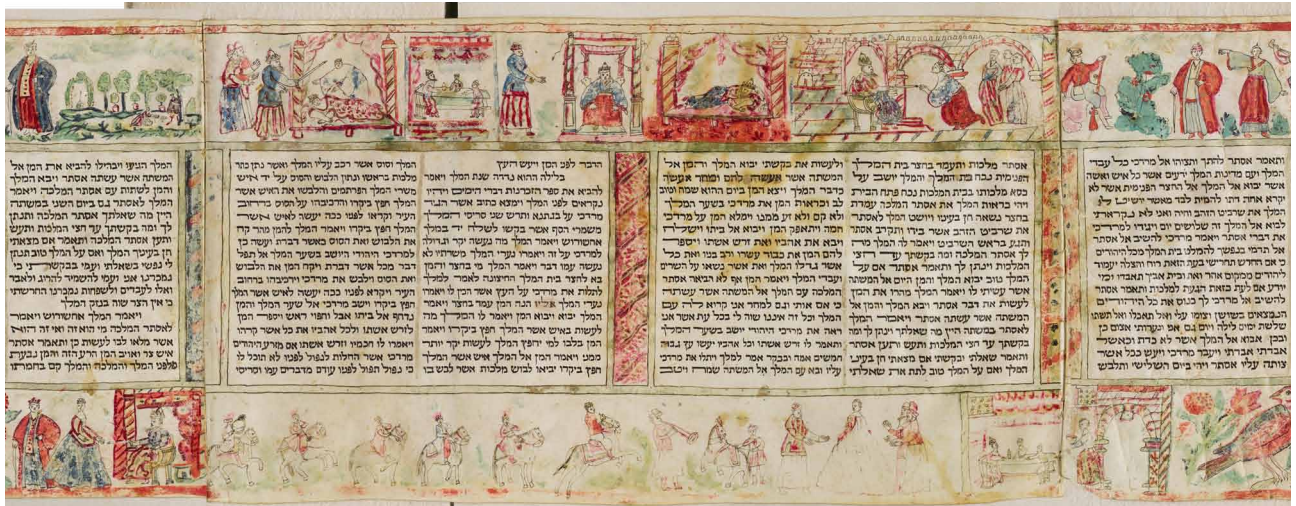 ותאמר אסתר להתך ותצוהו אל מרדכי כל עבדי
המלך ועם מדינות המלך ידעים אשר כל איש ואשה
אשר יבוא אל המלך אל החצר הפנימית אשר לא
יקרא אחת דתו להמית לבד מאשר יושיט לו
המלך את שרביט הזהב וחיה ואני לא נקראתי
לבוא אל המלך זה שלושים יום ויגידו למרדכי
את דברי אסתר ויאמר מרדכי להשיב אל אסתר
אל תדמי בנפשך להמלט בית המלך מכל היהודים
כי אם החרש תחרישי בעת הזאת רוח והצלה יעמוד
ליהודים ממקום אחר ואת ובית אביך תאבדו ומי
יודע אם לעת כזאת הגעת למלכות ותאמר אסתר
להשיב אל מרדכי לך כנוס את כל היהודים
הנמצאים בשושן וצומו עלי ואל תאכלו ואל תשתו
שלשת ימים לילה ויום גם אני ונערתי אצום כן
ובכן אבוא אל המלך אשר לא כדת וכאשר
אבדתי אבדתי ויעבר מרדכי ויעש ככל אשר
צותה עליו אסתר ויהי ביום השלישי ותלבש
אסתר מלכות ותעמד בחצר בית המלך
הפנימית נכח בית המלך והמלך יושב על
כסא מלכותו בבית המלכות נכח פתח הבית
ויהי כראות המלך את אסתר המלכה עמדת
בחצר נשאה חן בעיניו ויושט המלך לאסתר
את שרביט הזהב אשר בידו ותקרב אסתר
ותגע בראש השרביט ויאמר לה המלך מה
לך אסתר המלכה ומה בקשתך עד חצי
המלכות וינתן לך ותאמר אסתר אם על
המלך טוב יבוא המלך והמן היום אל המשתה
אשר עשיתי לו ויאמר המלך מהרו את המן
לעשות את דבר אסתר ויבא המלך והמן אל
המשתה אשר עשתה אסתר ויאמר המלך
לאסתר במשתה היין מה שאלתך וינתן לך ומה
בקשתך עד חצי המלכות ותעש ותען אסתר
ותאמר שאלתי ובקשתי אם מצאתי חן בעיני
המלך ואם על המלך טוב לתת את שאלתי
ולעשות את בקשתי יבוא המלך והמן אל
המשתה אשר אעשה להם ומחר אעשה
כדבר המלך ויצא המן ביום ההוא שמח וטוב
לב וכראות המן את מרדכי בשער המלך
ולא קם ולא זע ממנו וימלא המן על מרדכי
חמה ויתאפק המן ויבוא אל ביתו וישלח
ויבא את אהביו ואת זרש אשתו ויספר
להם המן את כבוד עשרו ורב בניו ואת כל
אשר גדלו המלך ואת אשר נשאו על השרים
ועבדי המלך ויאמר המן אף לא הביאה אסתר
המלכה עם המלך אל המשתה אשר עשתה
כי אם אותי וגם למחר אני קרוא לה עם
המלך וכל זה איננו שוה לי בכל עת אשר אני
ראה את מרדכי היהודי יושב בשער המלך
ותאמר לו זרש אשתו וכל אהביו יעשו עץ גבה
חמשים אמה ובבקר אמר למלך ויתלו את מרדכי
עליו ובא עם המלך אל המשתה שמח וייטב
הדבר לפני המן ויעש העץ
בלילה ההוא נדדה שנת המלך ויאמר
להביא את ספר הזכרנות דברי הימים ויהיו
נקראים לפני המלך וימצא כתוב אשר הגיד
מרדכי על בגתנא ותרש שני סריסי המלך
משמרי הסף אשר בקשו לשלח יד במלך
אחשורוש ויאמר המלך מה נעשה יקר וגדולה
למרדכי על זה ויאמרו נערי המלך משרתיו לא
נעשה עמו דבר ויאמר המלך מי בחצר והמן
בא לחצר בית המלך החיצונה לאמר למלך
לתלות את מרדכי על העץ אשר הכין לו ויאמרו
נערי המלך אליו הנה המן עמד בחצר ויאמר
המלך יבוא ויבוא המן ויאמר לו המלך מה
לעשות באיש אשר המלך חפץ ביקרו ויאמר
המן בלבו למי יחפץ המלך לעשות יקר יותר
ממני ויאמר המן אל המלך איש אשר המלך
חפץ ביקרו יביאו לבוש מלכות אשר לבש בו
המלך וסוס אשר רכב עליו המלך ואשר נתן כתר
מלכות בראשו ונתון הלבוש והסוס על יד איש
משרי המלך הפרתמים והלבשו את האיש אשר
המלך חפץ ביקרו והרכיבהו על הסוס ברחוב
העיר וקראו לפניו ככה יעשה לאיש אשר
המלך חפץ ביקרו ויאמר המלך להמן מהר קח
את הלבוש ואת הסוס כאשר דברת ועשה כן
למרדכי היהודי היושב בשער המלך אל תפל
דבר מכל אשר דברת ויקח המן את הלבוש
ואת הסוס וילבש את מרדכי וירכיבהו ברחוב
העיר ויקרא לפניו ככה יעשה לאיש אשר המלך
חפץ ביקרו וישב מרדכי אל שער המלך והמן
נדחף אל ביתו אבל וחפוי ראש ויספר המן
לזרש אשתו ולכל אהביו את כל אשר קרהו
ויאמרו לו חכמיו וזרש אשתו אם מזרע היהודים
מרדכי אשר החלות לנפול לפניו לא תוכל לו
כי נפול תפול לפניו עודם מדברים עמו וסריסי
המלך הגיעו ויבהילו להביא את המן אל
המשתה אשר עשתה אסתר ויבא המלך
והמן לשתות עם אסתר המלכה ויאמר
המלך לאסתר גם ביום השני במשתה
היין מה שאלתך אסתר המלכה ותנתן
לך ומה בקשתך עד חצי המלכות ותעש
ותען אסתר המלכה ותאמר אם מצאתי
חן בעיניך המלך ואם על המלך טוב תנתן
לי נפשי בשאלתי ועמי בבקשתי כי
נמכרנו אני ועמי להשמיד להרוג ולאבד
ואלו לעבדים ולשפחות נמכרנו החרשתי
כי אין הצר שוה בנזק המלך
ויאמר המלך אחשורוש ויאמר
לאסתר המלכה מי הוא זה ואי זה הוא
אשר מלאו לבו לעשות כן ותאמר אסתר
איש צר ואויב המן הרע הזה והמן נבעת
מלפני המלך והמלכה והמלך קם בחמתו